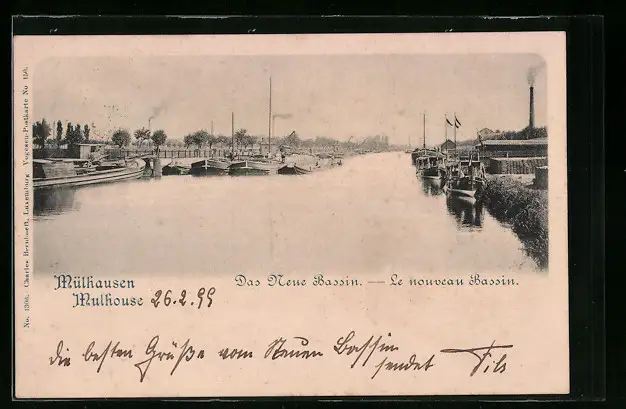 Mülhausen
Mulhouse 26.2.99
Das Neue Bassin. — Le nouveau Bassin.
die besten Grüße vom Neuen Bassin
sendet Fils
No. 1308. Charles Bernhoeft, Luxemburg Vogesen-Postkarte No 150.